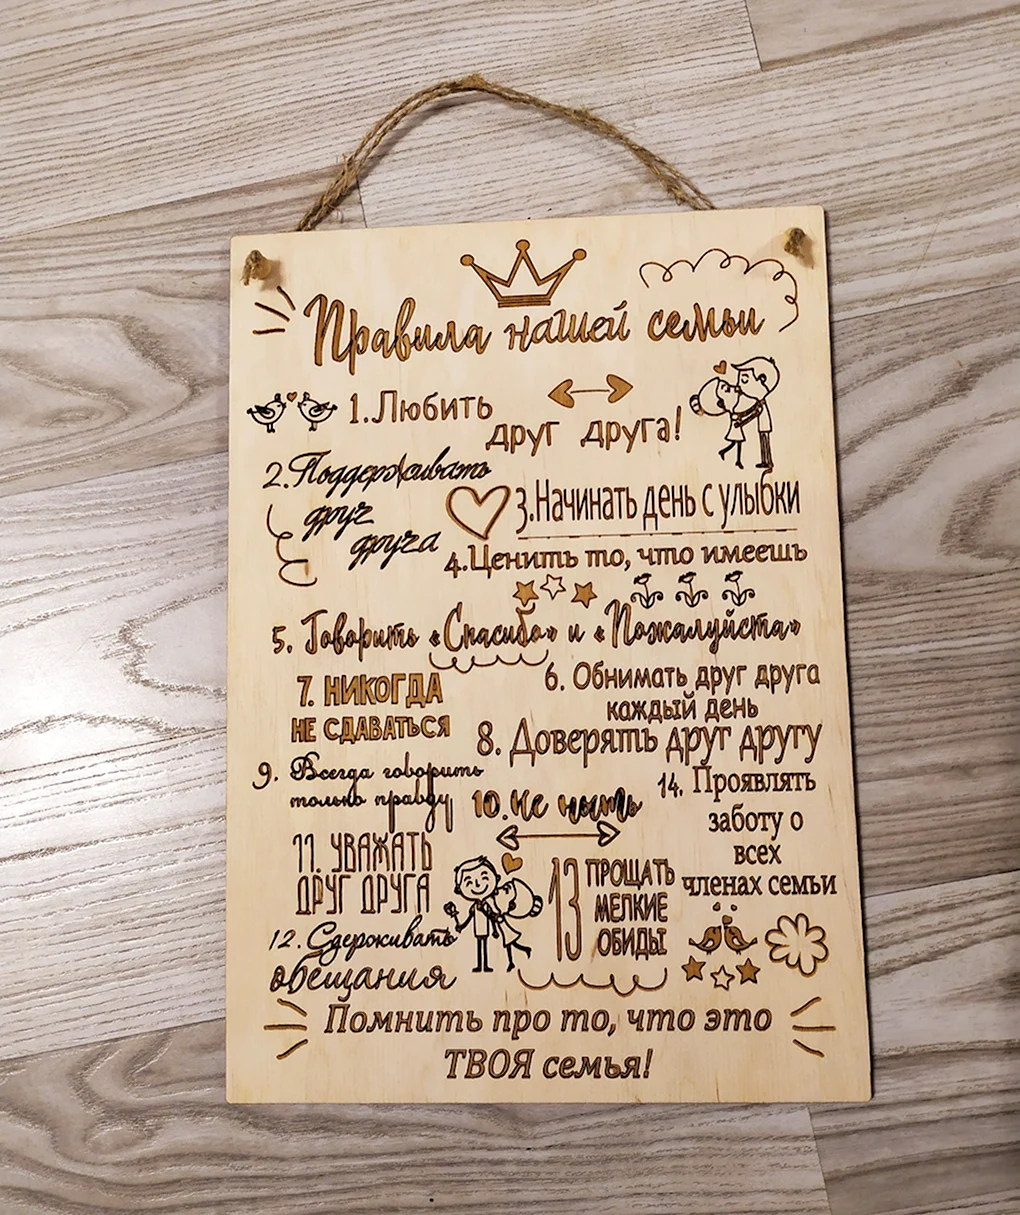 Правила нашей семьи
1. Любить
друг друга!
2. Поддерживать
друг
друга
3. Начинать день с улыбки
4. Ценить то, что имеешь
5. Говорить «Спасибо» и «Пожалуйста»
6. Обнимать друг друга
каждый день
7. НИКОГДА
НЕ СДАВАТЬСЯ
8. Доверять друг другу
9. Всегда говорить
только правду
10. Не ныть
11. УВАЖАТЬ
ДРУГ ДРУГА
12. Сдерживать
обещания
13 ПРОЩАТЬ
МЕЛКИЕ
ОБИДЫ
14. Проявлять
заботу о
всех
членах семьи
Помнить про то, что это
ТВОЯ семья!